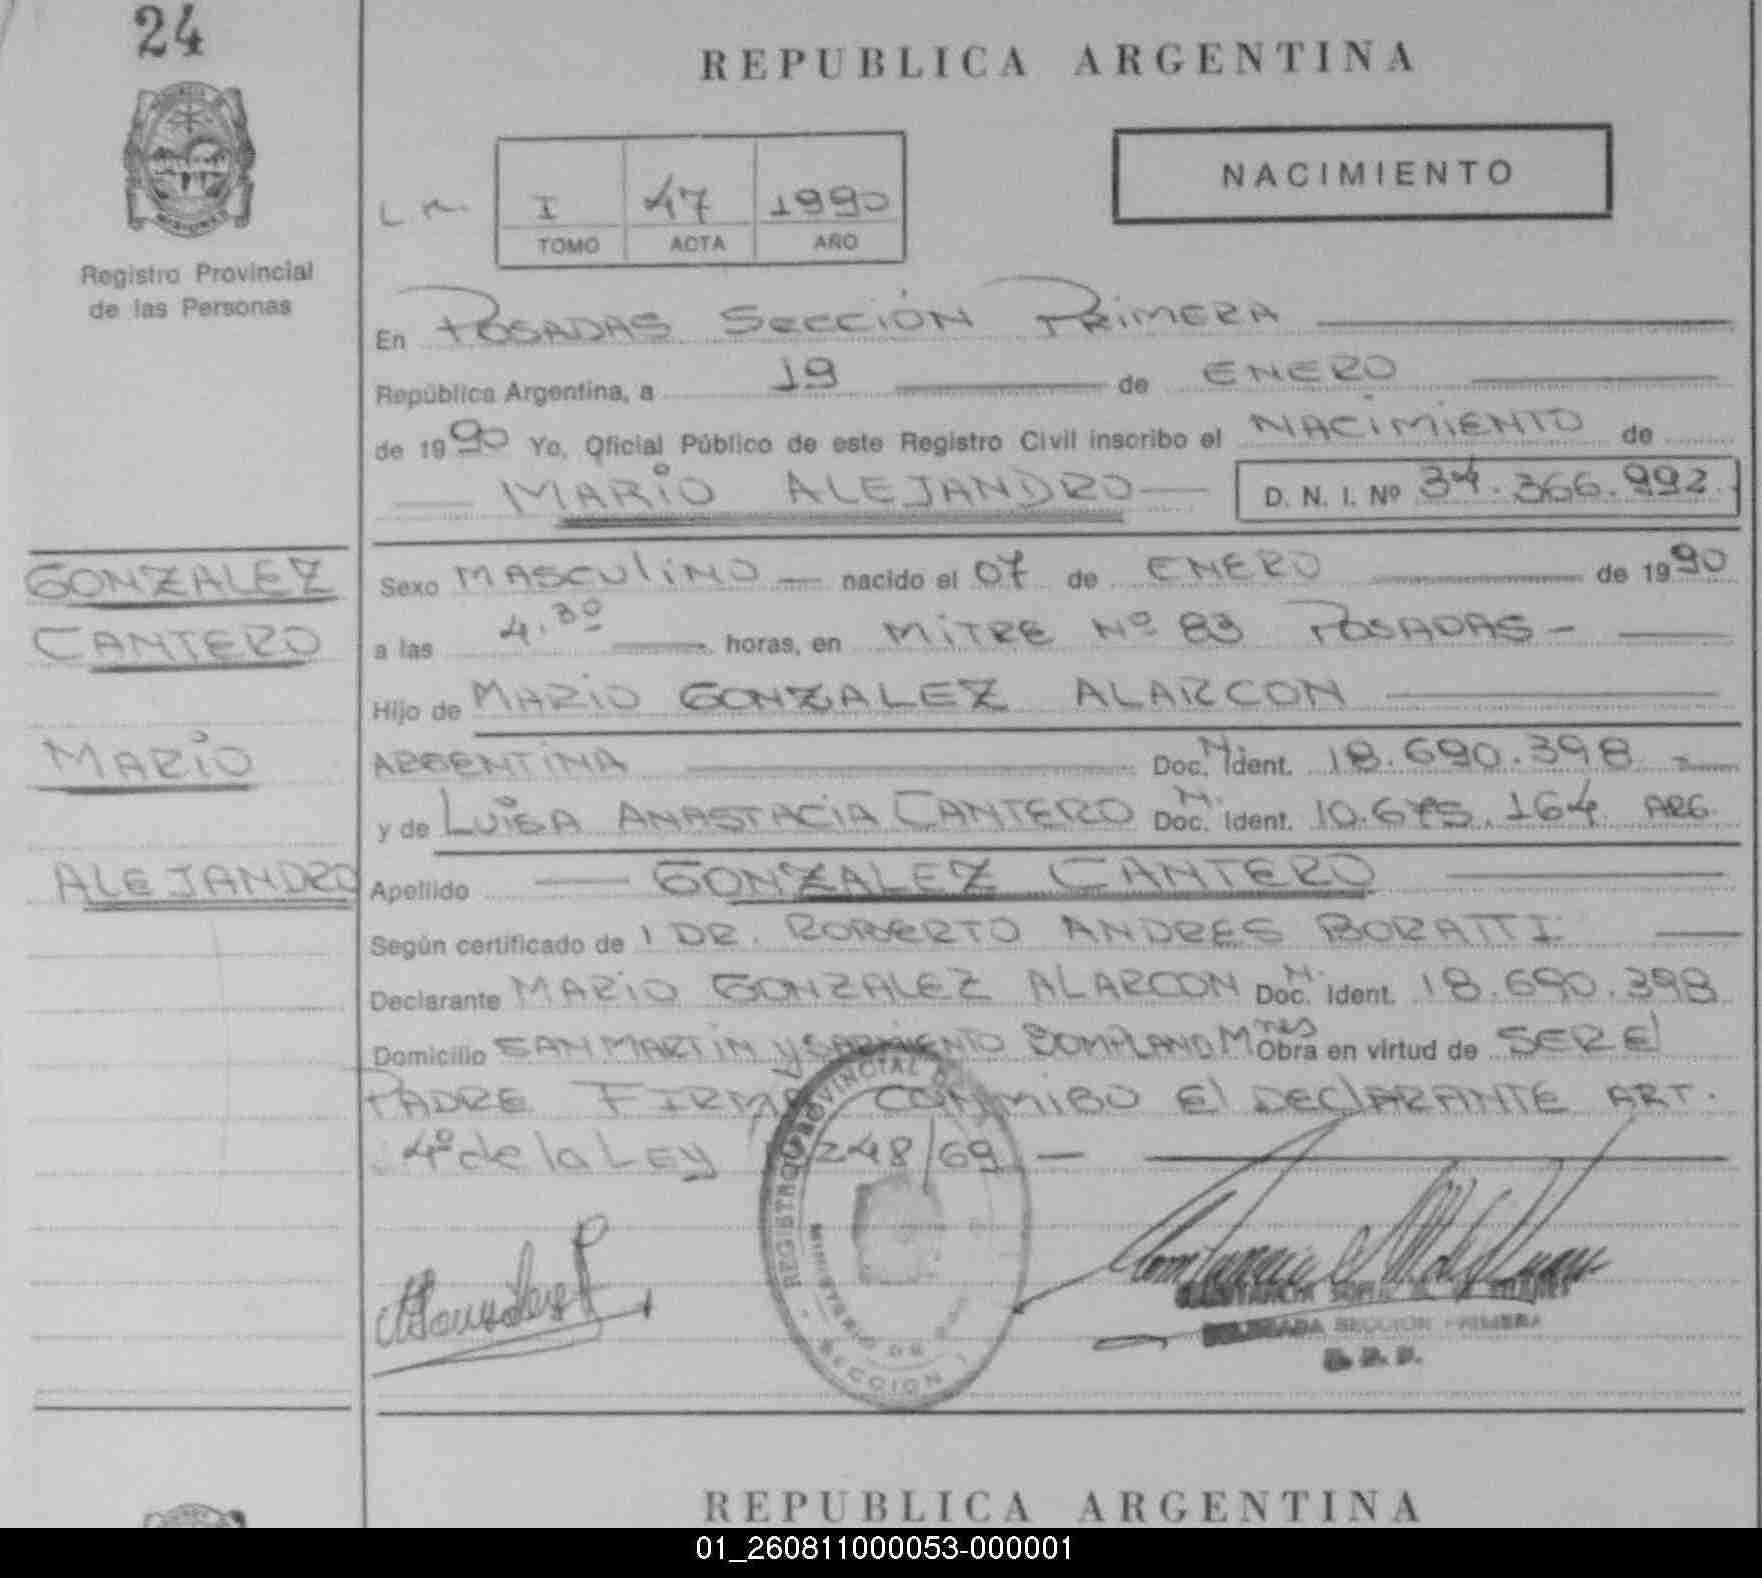 24
REPUBLICA ARGENTINA
NACIMIENTO
I 47 1990
TOMO ACTA AÑO
Registro Provincial
de las Personas
En POSADAS SECCIÓN PRIMERA
República Argentina, a 19 de ENERO
de 1990 Yo, Oficial Público de este Registro Civil inscribo el NACIMIENTO de
MARIO ALEJANDRO D. N. I. Nº 34.366.992.
GONZALEZ
CANTERO
MARIO
ALEJANDRO
Sexo MASCULINO nacido el 07 de ENERO de 1990
a las 4.30 horas, en MITRE Nº 83 POSADAS -
Hijo de MARIO GONZALEZ ALARCON
ARGENTINA Doc. N. Ident. 18.690.398
y de LUISA ANASTACIA CANTERO Doc. N. Ident. 10.675.164 ARG.
Apellido GONZALEZ CANTERO
Según certificado de DR. ROBERTO ANDRES BORATTI
Declarante MARIO GONZALEZ ALARCON Doc. N. Ident. 18.690.398
Domicilio SAN MARTIN Y SARMIENTO BOMPLAND Mnes Obra en virtud de SER El
PADRE FIRMA CONMIGO El DECLARANTE ART.
4º de la LEY 248/69 -
REGISTRO PROVINCIAL DE
MINISTERIO DE
SECCION 1
SECCION PRIMERA
REPUBLICA ARGENTINA
01_260811000053-000001